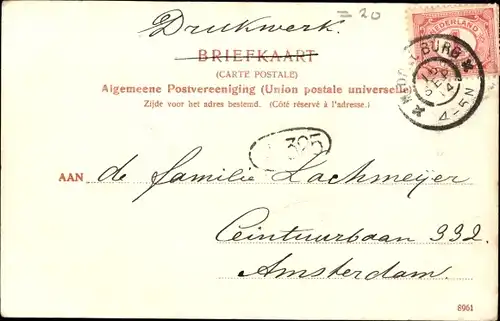 = 20
Drukwerk.
BRIEFKAART
(CARTE POSTALE)
Algemeene Postvereeniging (Union postale universelle)
Zijde voor het adres bestemd. (Côté réservé à l'adresse.)
NEDERLAND
BURG
4-5N
325
AAN de familie Lachmeijer
Ceintuurbaan 332.
Amsterdam.
8961